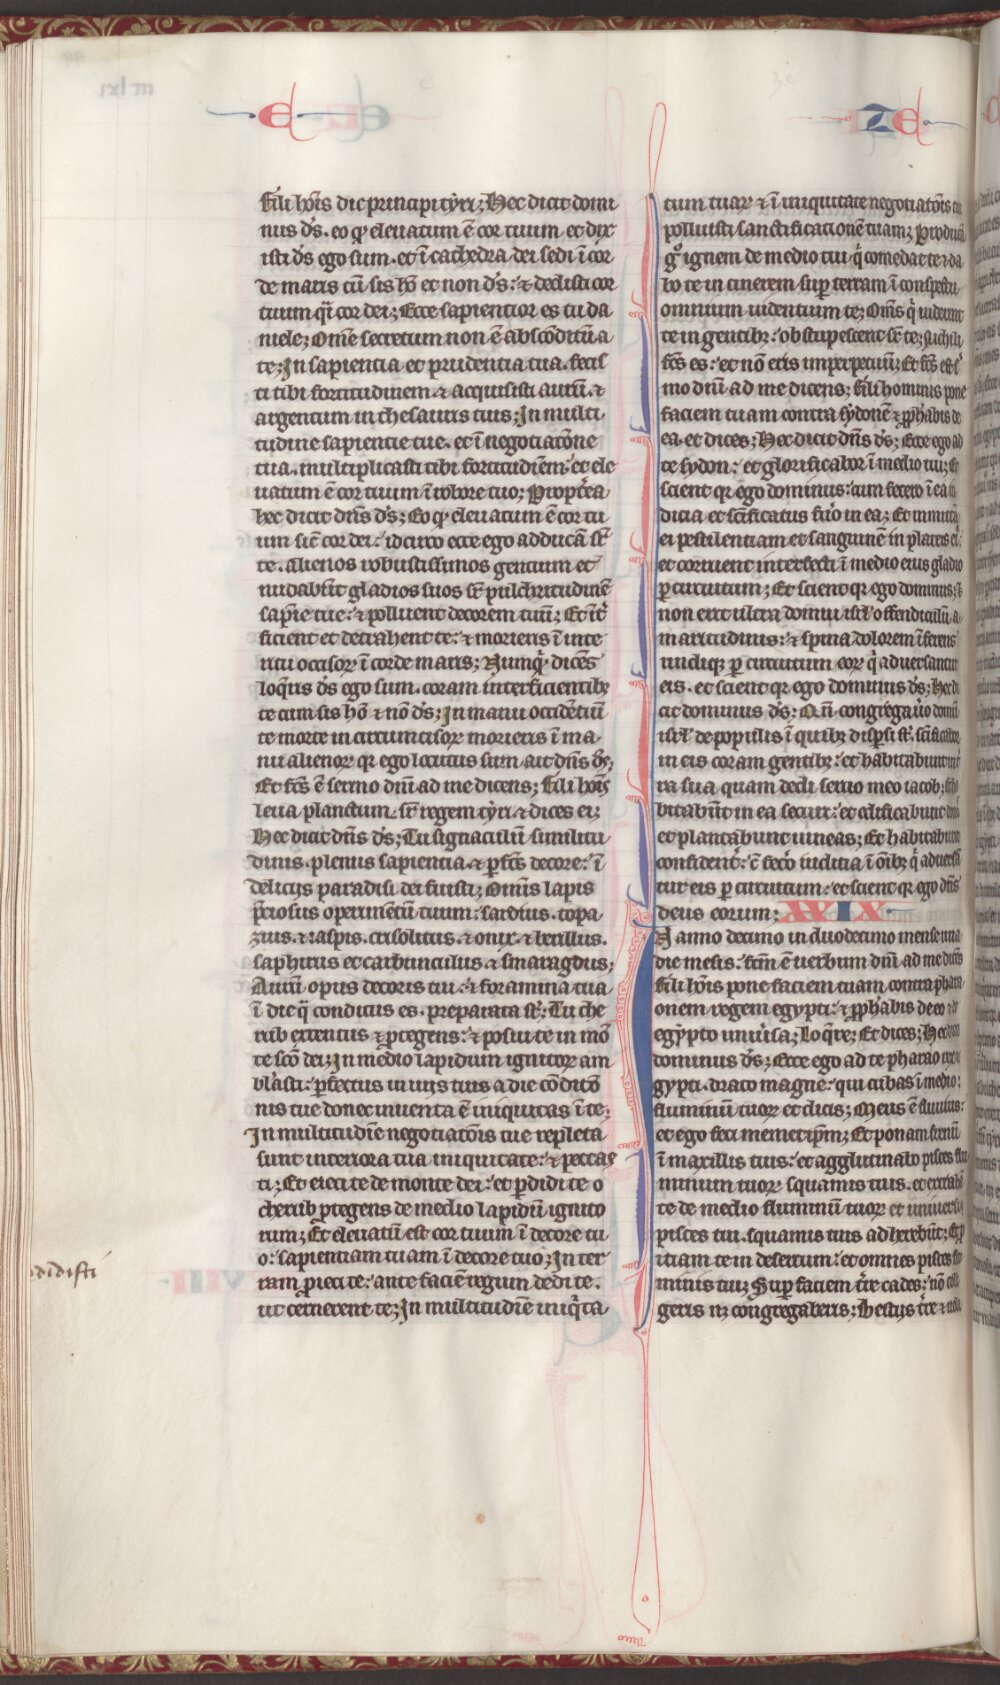 E
ZE
fili hoīs dic principi tyri; Hec dicit domi
nus ds̄. eo qꝫ eleuatum ē cor tuum. et dix
isti ds̄ ego sum. et ī cathedra dei sedi ī cor
de maris cū sis hō et non ds̄: & dedisti cor
tuum qī cor dei; Ecce sapientior es tu da
niele; Omē secretum non ē absconditū a
te; In sapientia et prudentia tua. fecis
ti tibi fortitudinem & acquisisti aurū. &
argentum in thesauris tuis; In multi
tudine sapientie tue. et ī negotiatōne
tua. multiplicasti tibi fortitudiēm. et ele
uatum ē cor tuum ī robore tuo; Propt̄ea
hec dicit dn̄s ds̄; Eo qꝫ eleuatum ē cor tu
um sic̄ cor dei: idcirco ecce ego adducā sr̄
te. alienos robustissimos gentium et
nudabūt gladios suos sr̄ pulchritudinē
sapīe tue: & polluent decorem tuū; Et int̄
ficient et detrahent te: & morieris ī inte
ritu occisoꝝ ī corde maris; Nunqꝫ dicēs
loqūis ds̄ ego sum. coram interficientibꝫ
te cum sis hō & nō ds̄; In manu occidētiū
te morte incircumcisoꝝ morieris ī ma
nu alienoꝝ qr ego locutus sum ait dn̄s ds̄;
Et fcs̄ ē sermo dn̄i ad me dicens; fili hoīs
leua planctum. sr̄ regem tyri & dices ei;
Hec dicit dn̄s ds̄; Tu signaculū similitu
dinis. plenus sapientia. & ꝑfcs̄ decore: ī
delicijs paradisi dei fuisti; Omīs lapis
p̄ciosus operimētū tuum: sardius. topa
zius. & iaspis. crisolitus. & onix. & berillus.
saphirus et carbunculus & smaragdus;
Aurū opus decoris tui: & foramina tua
ī die qͣ conditus es. preparata st̄; Tu che
rub extentus & ꝓtegens: & posui te in mō
te scō dei; In medio lapidum ignitoꝝ am
blasti: ꝑfectus in uijs tuis a die cōditō
nis tue donec inuenta ē iniquitas ī te;
In multitudīe negotiatōis tue repleta
sunt interiora tua iniquitate: & peccas
ti; Et eieci te de monte dei: et ꝑdidi te o
cherub ꝓtegens de medio lapidū ignito
rum; Et eleuatū est cor tuum ī decore tu
o: sapientiam tuam ī decore tuo; In ter
ram ꝓieci te: ante faciē regum dedi te.
ut cernerent te; In multitudīe iniqͥta
didisti
tum tuaꝝ & ī iniquitate negotiatōis
polluisti sanctificationē tuam;
gͦ ignem de medio tui. qͥ comedat te & da
bo te in cinerem suꝑ terram ī conspectu
omnium uidentium te; Om̄s qͥ uiderint
te in gentibꝫ: obstupescent sr̄ te;
fcs̄ es: et nō eris imperpetuū; Et fcs̄ est
mo dn̄i ad me dicens; fili hominis pone
faciem tuam contra sydonē & ꝓphabis de
ea. et dices; Hec dicit dn̄s ds̄; Ecce ego ad
te sydon: et glorificabor ī medio tui; Et
scient qr ego dominus: cum fecero ī ea
dicia et scīficatus fuō in ea; Et inmittā
ei pestilentiam et sanguinē in plateis
et corruent interfecti ī medio eius gladio
ꝑ circuitum; Et scient qr ego dominus; &
non erit ultra domui isrl̄ offendiculū a
maritudinis: & spina dolorem īferens
undiqꝫ ꝑ circuitum eoꝝ qͥ aduersantur
eis. et scient qr ego dominus ds̄; Hec di
cit dominus ds̄: Qn̄. congregaūo domū
isrl̄ de populis ī quibꝫ disꝑsi st̄. scīficabor
in eis coram gentibꝫ: et habitabunt
ra sua quam dedi seruo meo iacob;
bitabūt in ea securi: et edificabunt
et plantabunt uineas; Et habitabunt
confident̄: c̄ fecō iudicia ī oībꝫ qͥ aduersā
tur eis ꝑ circuitum: et scient qr ego dn̄s
deus eorum; XXIX.
anno decimo in duodecimo mense una
die mēsis. fcm̄ ē uerbum dn̄i ad me dicēs
fili hoīs pone faciem tuam contra phara
onem regem egypti: & ꝓphabis de eo
egypto uniūsa; Loqͤre; Et dices; Hec
dominus ds̄; Ecce ego ad te pharao
gypti. draco magne: qui cubas ī medio:
fluminū tuoꝝ et dicis; Meus ē fluuius:
et ego feci memetip̄m; Et ponam frenū
ī maxillis tuis: et agglutinabo pisces
minum tuoꝝ squamis tuis. et extrahā
te de medio fluminū tuoꝝ et uniuersi
pisces tui. squamis tuis adherebūt;
iciam te in desertum: et omnes pisces
minis tui; Suꝑ faciem tr̄re cades: nō
geris nꝫ congregaberis; Bestijs tr̄re &